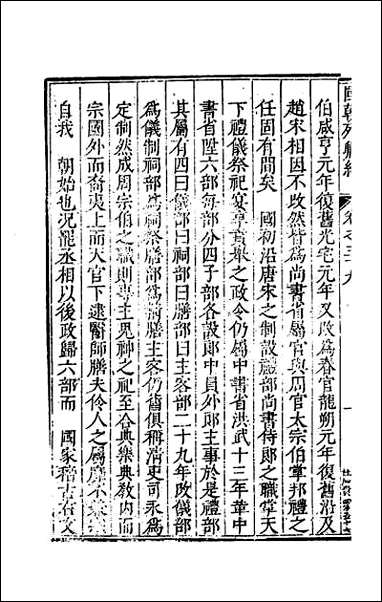 國朝列卿紀 卷之三十九 一
伯咸亨元年復舊光宅元年又改為春官龍朔元年復舊沿及
趙宋相因不改然皆為尚書省屬官與周官大宗伯掌邦禮之
任固有間矣 國初沿唐宋之制設禮部尚書侍郎之職掌天
下禮儀祭祀宴享貢舉之政令仍屬中書省洪武十三年革中
書省陞六部每部分四子部各設郎中員外郎主事於是禮部
其屬有四曰儀部曰祠部曰膳部曰主客部二十九年改儀部
為儀制祠部為祠祭膳部為精膳主客仍舊俱稱清吏司永為
定制然成周宗伯之職則專主鬼神之祀至於典樂典教內而
宗國外而裔夷上而天官下逮醫師膳夫伶人之屬靡不
自我 朝始也況罷丞相以後政歸六部而 國家稽古右文